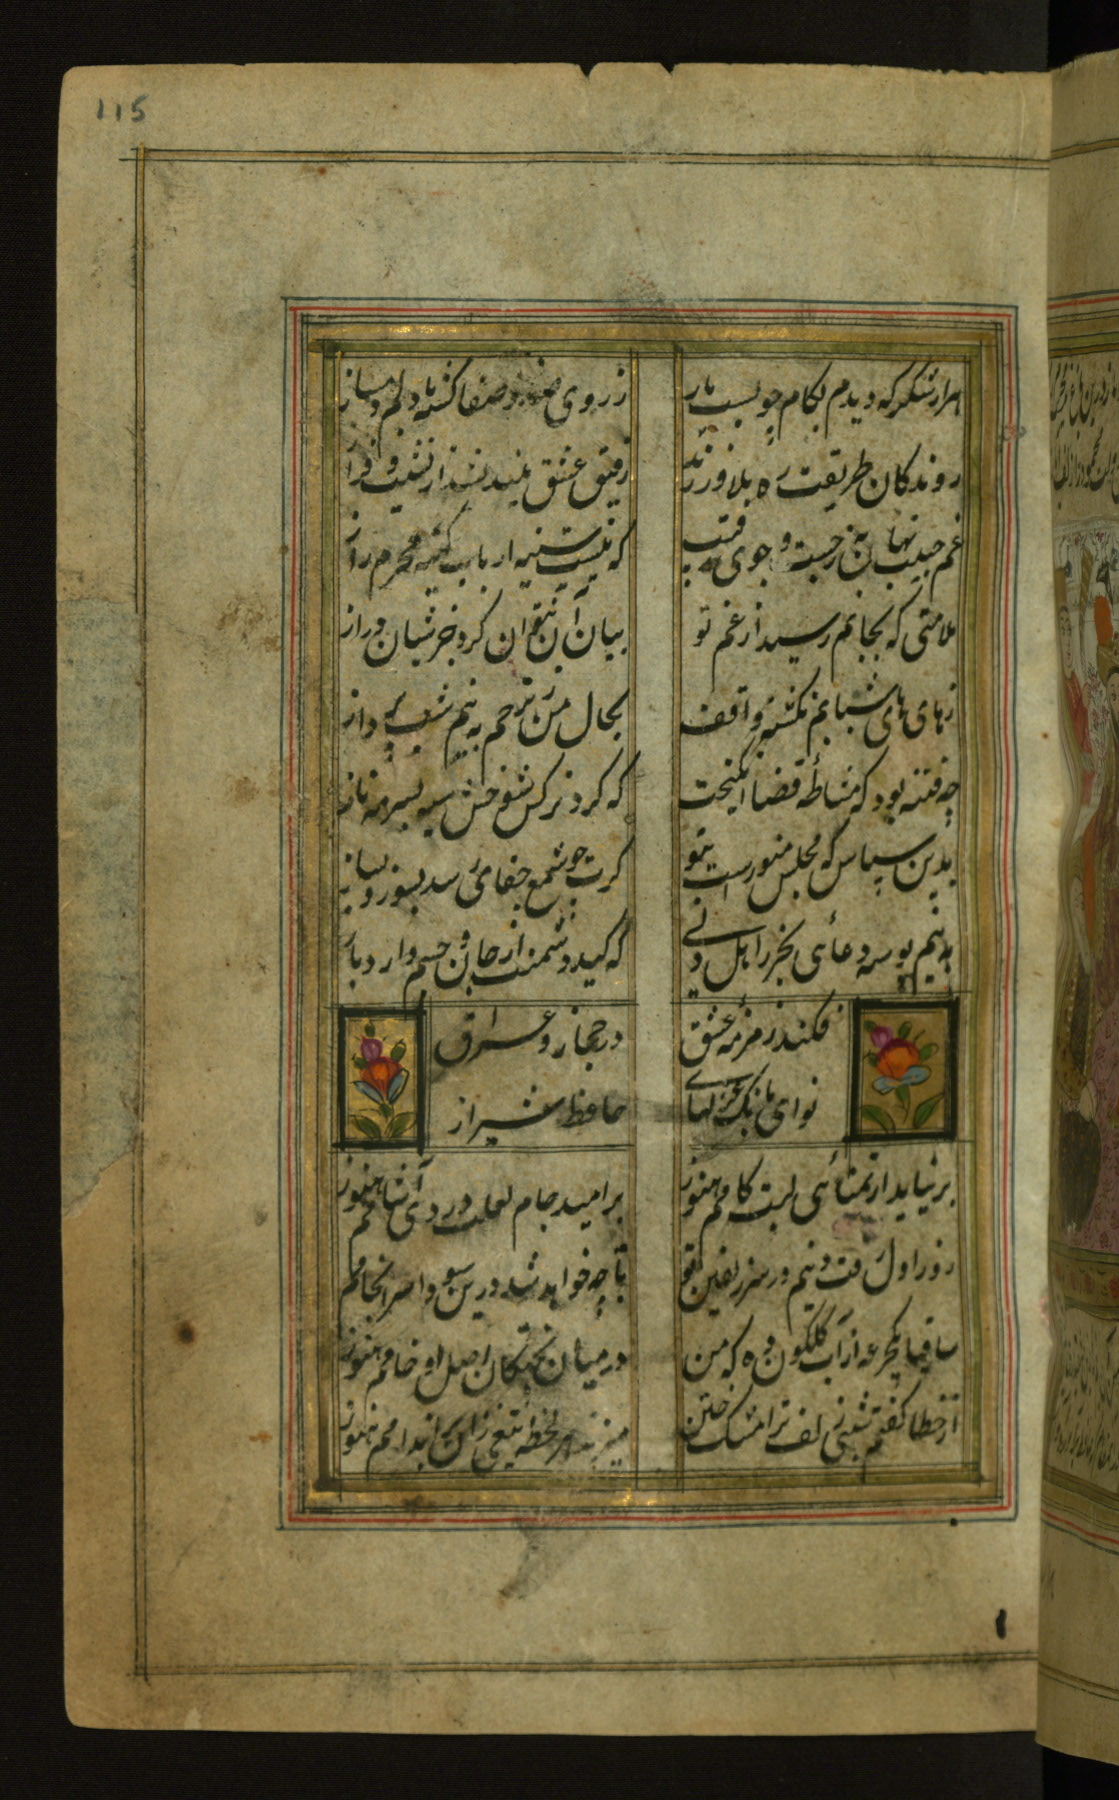 115
هزار شکر که دیدم بکام چو بست باز
ز روی صدق و صفا گشته با دلم دمساز
روندکان طریقت ره بلا ورزند
رفیق عشق نیندیشد از نشیب و فراز
غم حبیب نهان به ز جست و جوی رقیب
که نیست سینه ارباب کینه محرم راز
ملامتی که بجانم رسید از غم تو
بیان آن نتوان کرد جز شبان دراز
بحال من ترحم به نیم شب پرداز
چه فتنه بود که مشاطه قضا انگیخت
که کرد نرکس شوخش سیه بسرمه ناز
بدین سپاس که مجلس منورست بتو
کرت چو شمع جفای رسد بسوز و بساز
به نیم بوسه دعائی بخر ز اهل دلی
که کید دشمنت از جان و جسم دارد باز
فکند زمزمه عشق
در حجاز و عراق
نوای بانک غزلهای
حافظ شیراز
بر نیاید از تمنائی لبت کامم هنوز
بر امید جام لعلت دردی آشامم هنوز
روز اول رفت دینم در سر زلفین تو
تا چه خواهد شد درین سودا سرانجامم
ساقیا یکجرعه از آب گلگون ده که من
در میان پختکان اصل او خامم هنوز
از خطا گفتم شبی زلف ترا مشک ختن
میزند هر لحظه تیغی زان بر اندامم هنوز